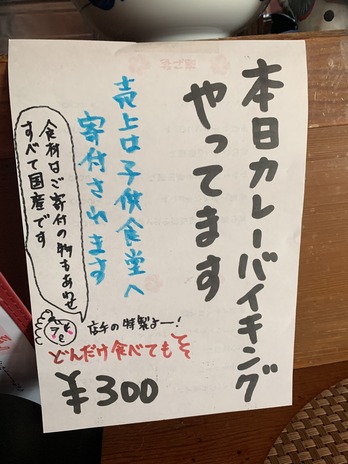 本日カレーバイキング
やってます
売上は子供食堂へ
寄付されます
食材はご寄付の物もあわせ
すべて国産です
店手の特製よー!
どんだけ食べても
¥300